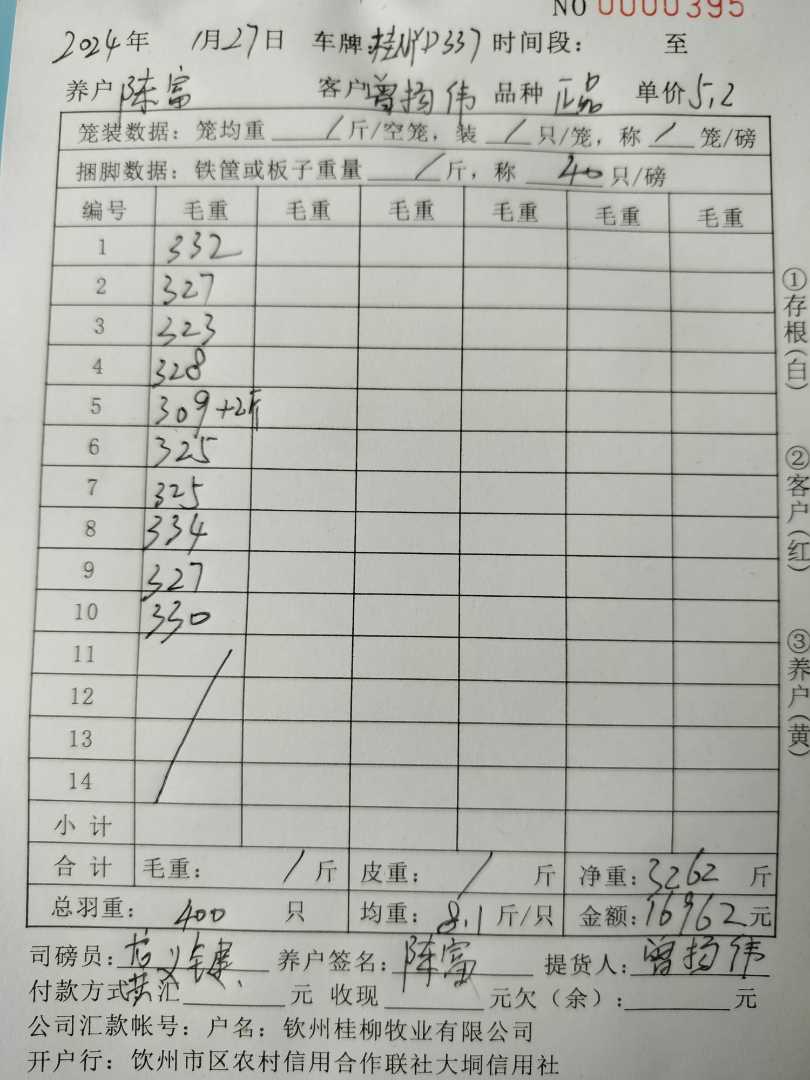 NO 0000395
2024年 1月27日 车牌:桂NYD337 时间段: 至
养户 陈富 客户 曾扬伟 品种 正品 单价 5.2
笼装数据: 笼均重 / 斤/空笼, 装 / 只/笼, 称 / 笼/磅
捆脚数据: 铁筐或板子重量 / 斤, 称 40 只/磅
编号 毛重 毛重 毛重 毛重 毛重 毛重
1 332
2 327
3 323
4 328
5 309+2斤
6 325
7 325
8 334
9 327
10 330
11
12
13
14
小计
合计 毛重: / 斤 皮重: / 斤 净重: 3262 斤
总羽重: 400 只 均重: 8.1 斤/只 金额: 16962 元
司磅员: 养户签名: 陈富 提货人: 曾扬伟
付款方式 汇 元 收现 元欠(余): 元
公司汇款帐号: 户名: 钦州桂柳牧业有限公司
开户行: 钦州市区农村信用合作联社大垌信用社
①存根(白)
②客户(红)
③养户(黄)